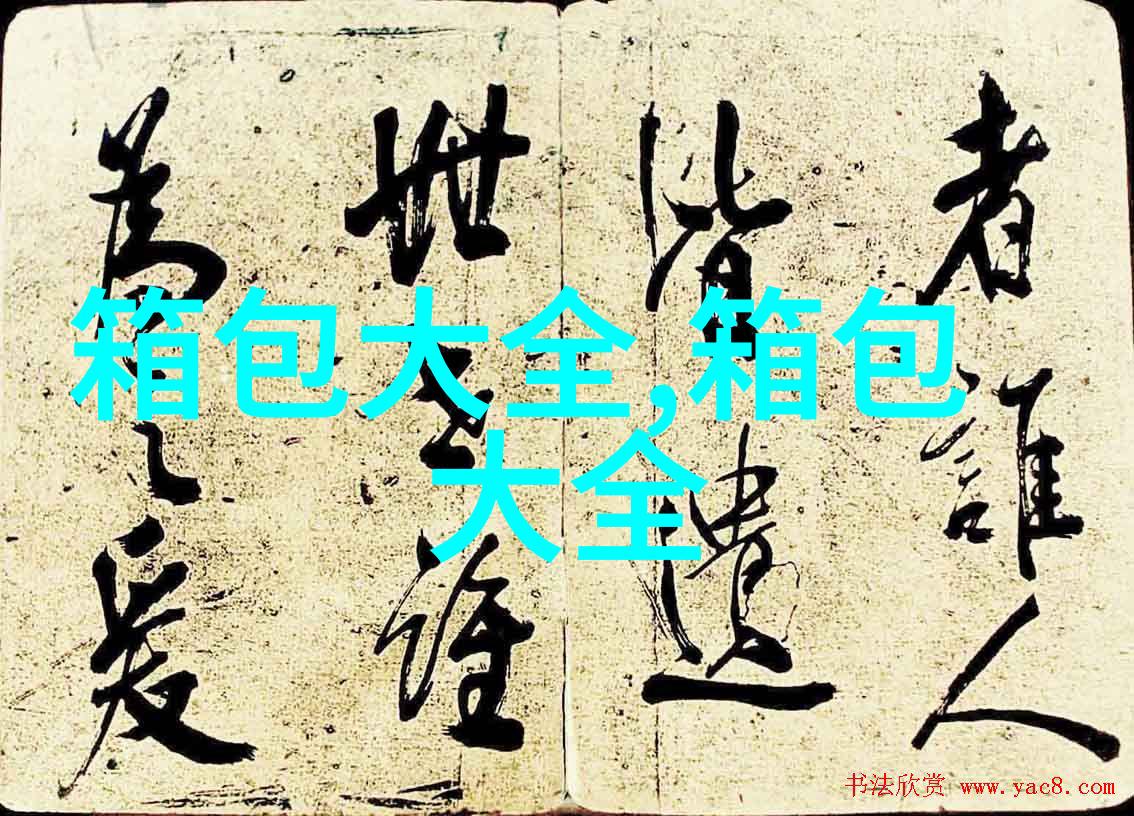 箱包大全,箱包
大全
者誰人
皆遺
世誰
為
书法欣赏 www.yac8.com